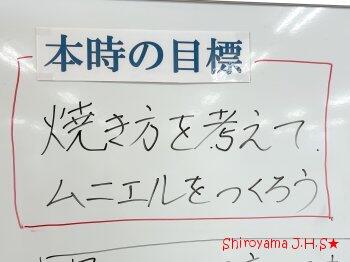 本時の目標
焼き方を考えて
ムニエルをつくろう
Shiroyama J.H.S★